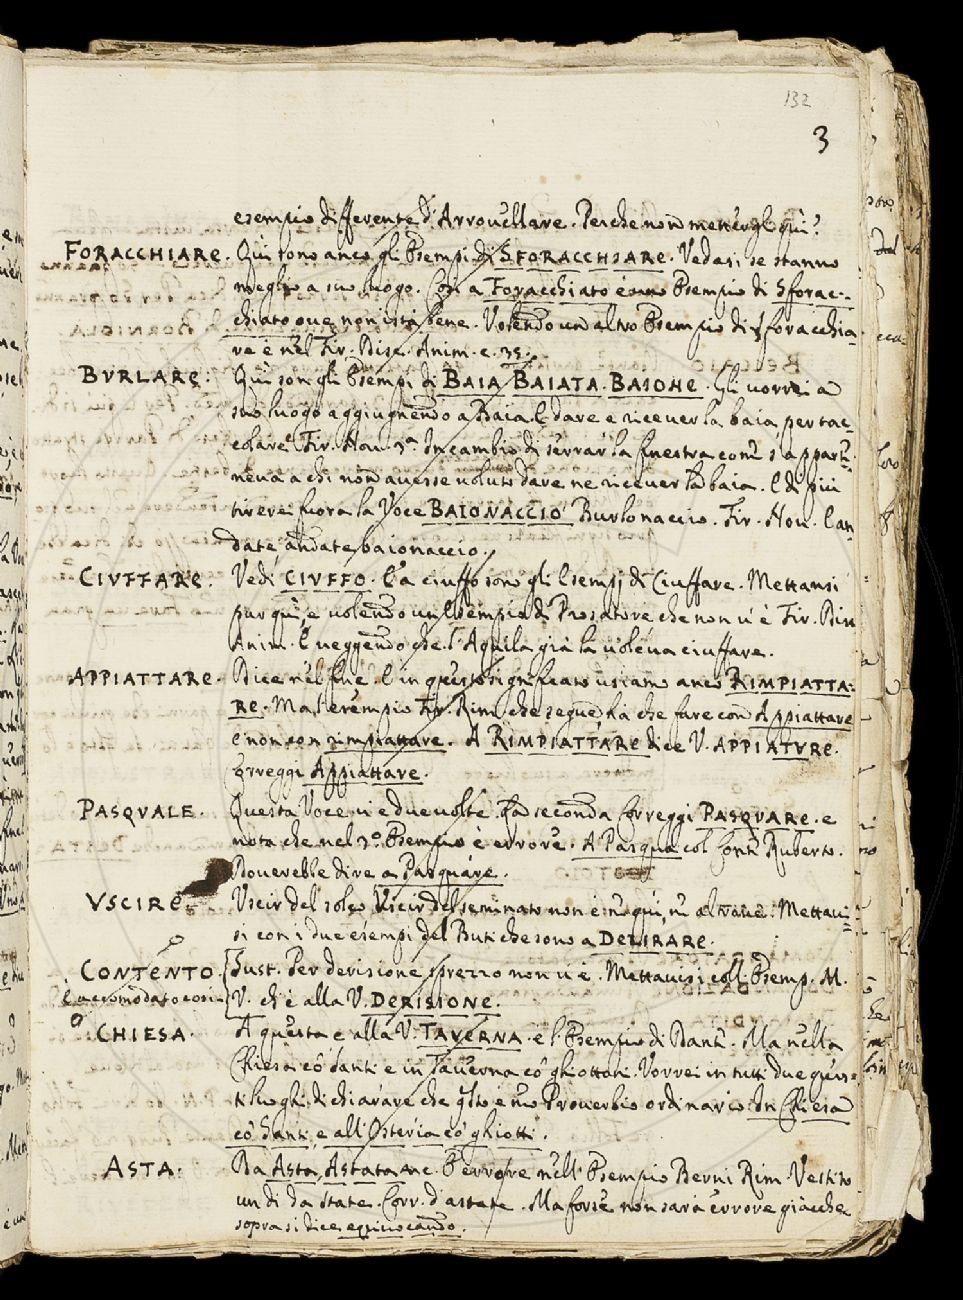 132
3
esempio differente d'Arrovellare. Perche non mettergli qui?
FORACCHIARE. Qui sono anco gli Esempi di SFORACCHIARE. Vedasi se stanno
meglio a suo luogo. Così a Foracchiato è uno Esempio di Sforac-
chiato oue non istà bene. Volendo un altro Esempio di sforacchia-
re è nel Fir. Disc. Anim. c. 35.
BVRLARE. Qui son gli Esempi di BAIA BAIATA. BAIONE. Gli vorrei a
suo luogo aggiugnendo a Baia E dare e ricever la baia, per
Fir. Nou. 3ª. In cambio di serrar la finestra come s'apparte-
neva a chi non avesse voluto dare ne ricever la baia. E di più
tirerei fuora la Voce BAIONACCIO Burlonaccio. Fir. Nou. E an
date andate baionaccio.
CIVFFARE. Vedi CIVFFO. E a ciuffo sono gli Esempj di Ciuffare. Mettansi
pur qui, e volendo un Esempio di Prosatore che non v'è Fir. Disc
Anim. E veggendo che l'Aquila già la voleva ciuffare.
APPIATTARE. Dice nel fine. E in questo significato usiamo anco RIMPIATTA-
RE. Ma l'esempio Fir. Rim. che segue ha che fare con Appiattare
e non con rimpiattare. A RIMPIATTARE dice V. APPIATVRE.
Correggi Appiattare.
PASQVALE. Questa Voce vi è due volte. La seconda Correggi PASQVARE. e
nota che nel 2º Esempio è errore. A Pasqua col Conte Ruberto.
Doverebbe dire a Pasquare.
VSCIRE. Uscir del solco Uscir del seminato non è nè qui, nè altrove. Mettavi-
si con i due esempi del Buti che sono a DELIRARE.
CONTENTO. Sust. Per derisione sprezzo non v'è. Mettavisi coll'Esemp. M.
è accomodato così V. ch'è alla V. DERISIONE.
CHIESA. A questa e alla V. TAVERNA. è l'Esempio di Dante. Ma nella
Chiesa cò santi e in Taverna cò ghiottoni. Vorrei in tutti due ques-
ti luoghi dichiarare che qsto è uno Proverbio ordinario. In Chiesa
cò Santi, e all'Osteria cò ghiotti.
ASTA. Da Asta, Astata anc. È errore nell'Esempio Berni Rim. Vestito
un dì da state. Corr. d'astate. Ma forse non sarà errore giacche
sopra si dice equivocando.